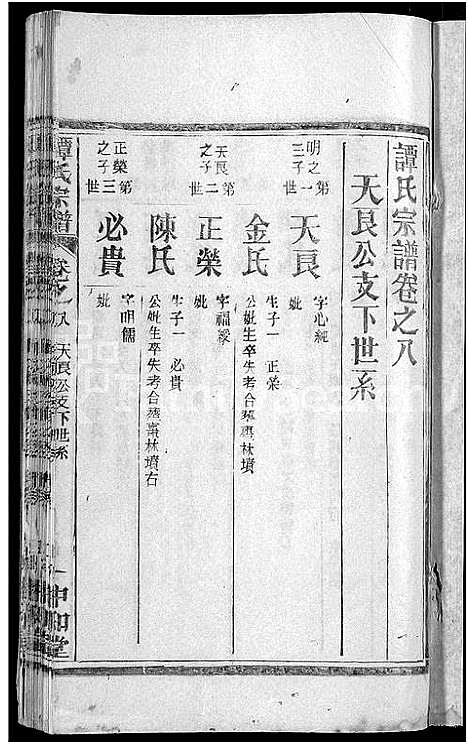 譚氏宗譜卷之八
天艮公支下世系
第一世
明之三子
天艮
字心純
妣
金氏
生子一 正榮
公妣生卒失考合葬 林墳
第二世
天艮之子
正榮
字福緣
妣
陳氏
生子一 必貴
公妣生卒失考合葬 林墳右
第三世
正榮之子
必貴
字明儒
妣
譚氏宗譜
卷之八 天艮公支下世系
一
中和堂